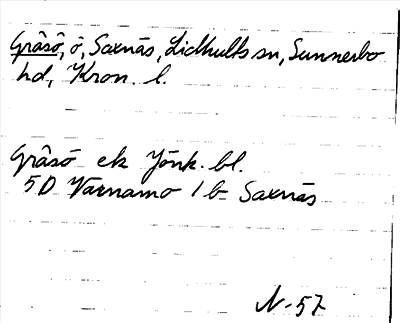 Gråsö, ö, Saxnäs, Lidhults sn, Sunnerbo
hd, Kron. l.
Gråsö ek Jönk. bl.
5D Värnamo 1 b Saxnäs
N-57